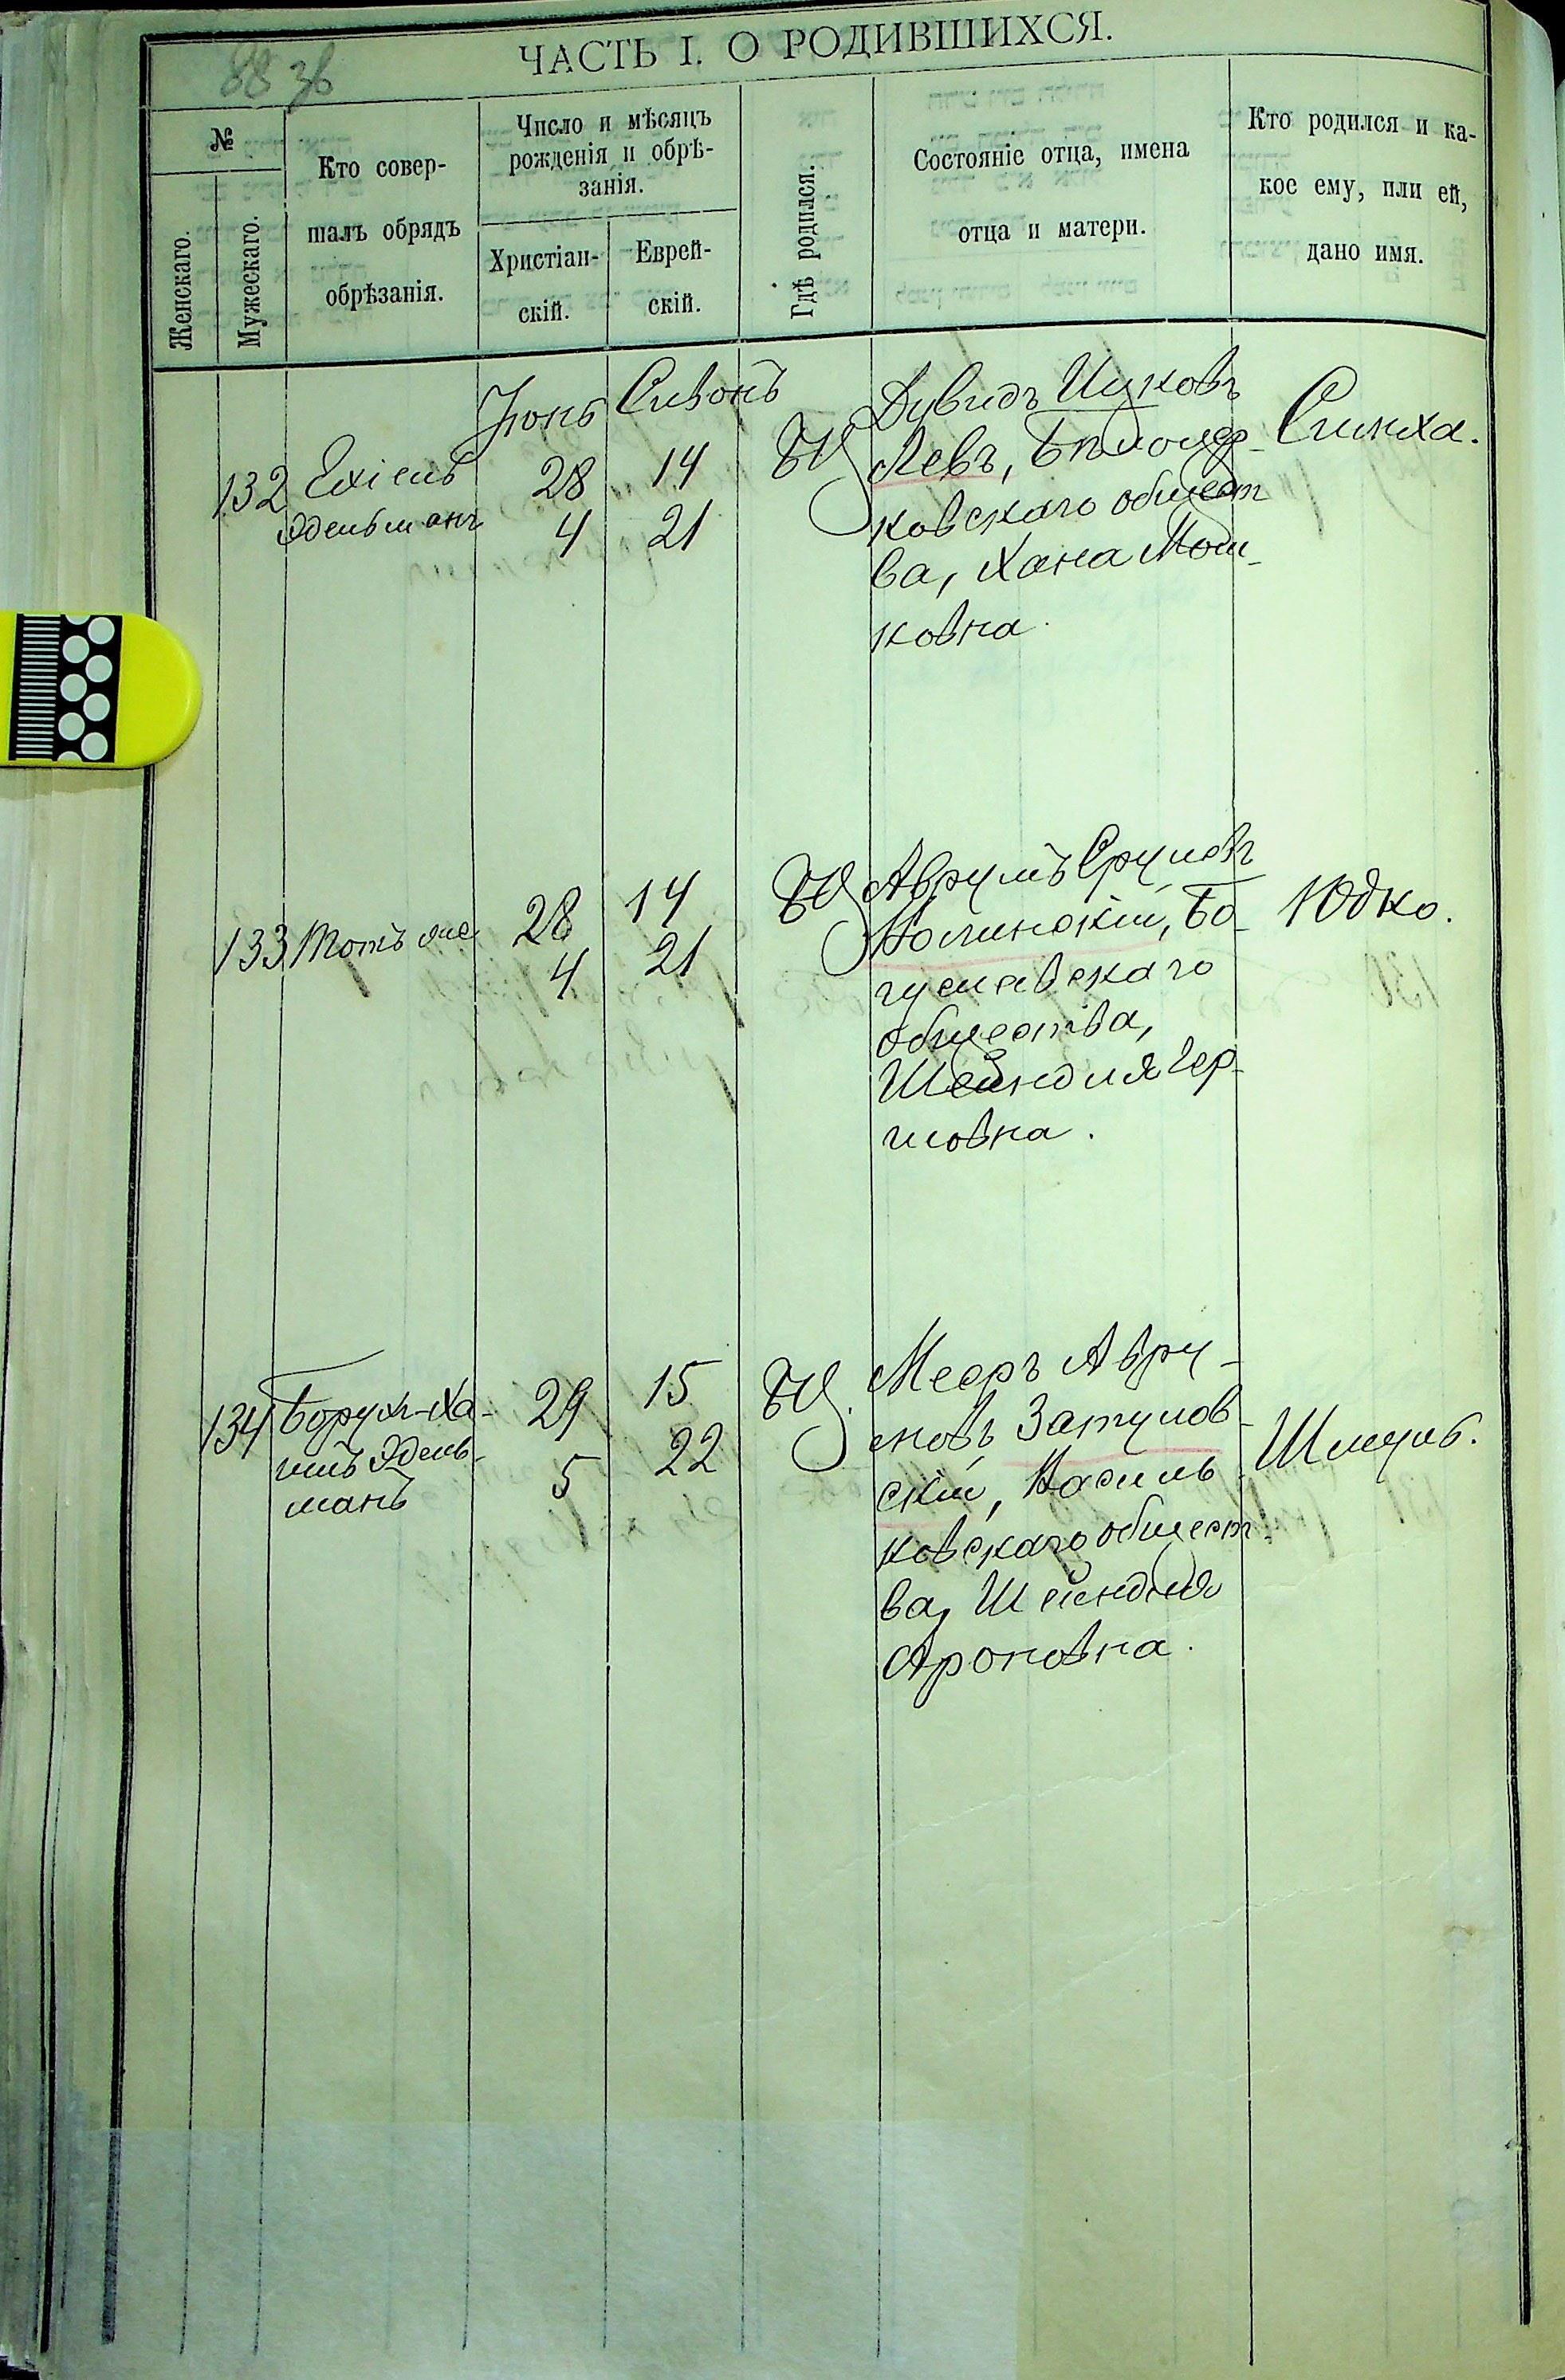 88 зв
ЧАСТЬ I. О РОДИВШИХСЯ.
№
Женскаго.
Мужескаго.
Кто совер-
шалъ обрядъ
обрѣзанія.
Число и мѣсяцъ
рожденія и обрѣ-
занія.
Христіан-
скій.
Еврей-
скій.
Гдѣ родился.
Состояніе отца, имена
отца и матери.
Кто родился и ка-
кое ему, или ей,
дано имя.
Іюнь Сивонъ
132 Ехіель
Эдельманъ
28 14
4 21
Дувидъ Ицковъ
Левъ, Бѣлоцер-
ковскаго общест-
ва, Хана Мош-
ковна.
Симха.
133 Тотъ же
28 14
4 21
Аврумъ Срулевъ
Волинскій, Бо-
гуславскаго
общества,
Шейндля Гер-
шовна.
Юдко.
134 Борухъ-Ха-
имъ Эдель-
манъ
29 15
5 22
Мееръ Авру-
мовъ Затулов-
скій, Василь-
ковскаго общест-
ва, Шейндля
Ароновна.
Шмуль.